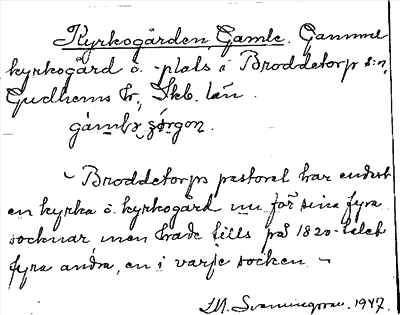 Kyrkogården Gamle. Gammal
kyrkogård o. -plats i Broddetorps s:n,
Gudhems hr, Skb. län.
gámbɤ ʒǿrgon.
~ Broddetorps pastorat har endast
en kyrka o. kyrkogård nu för sina fyra
socknar, men hade tills på 1820-talet
fyra andra, en i varje socken. ~
M. Svanungsson. 1947.